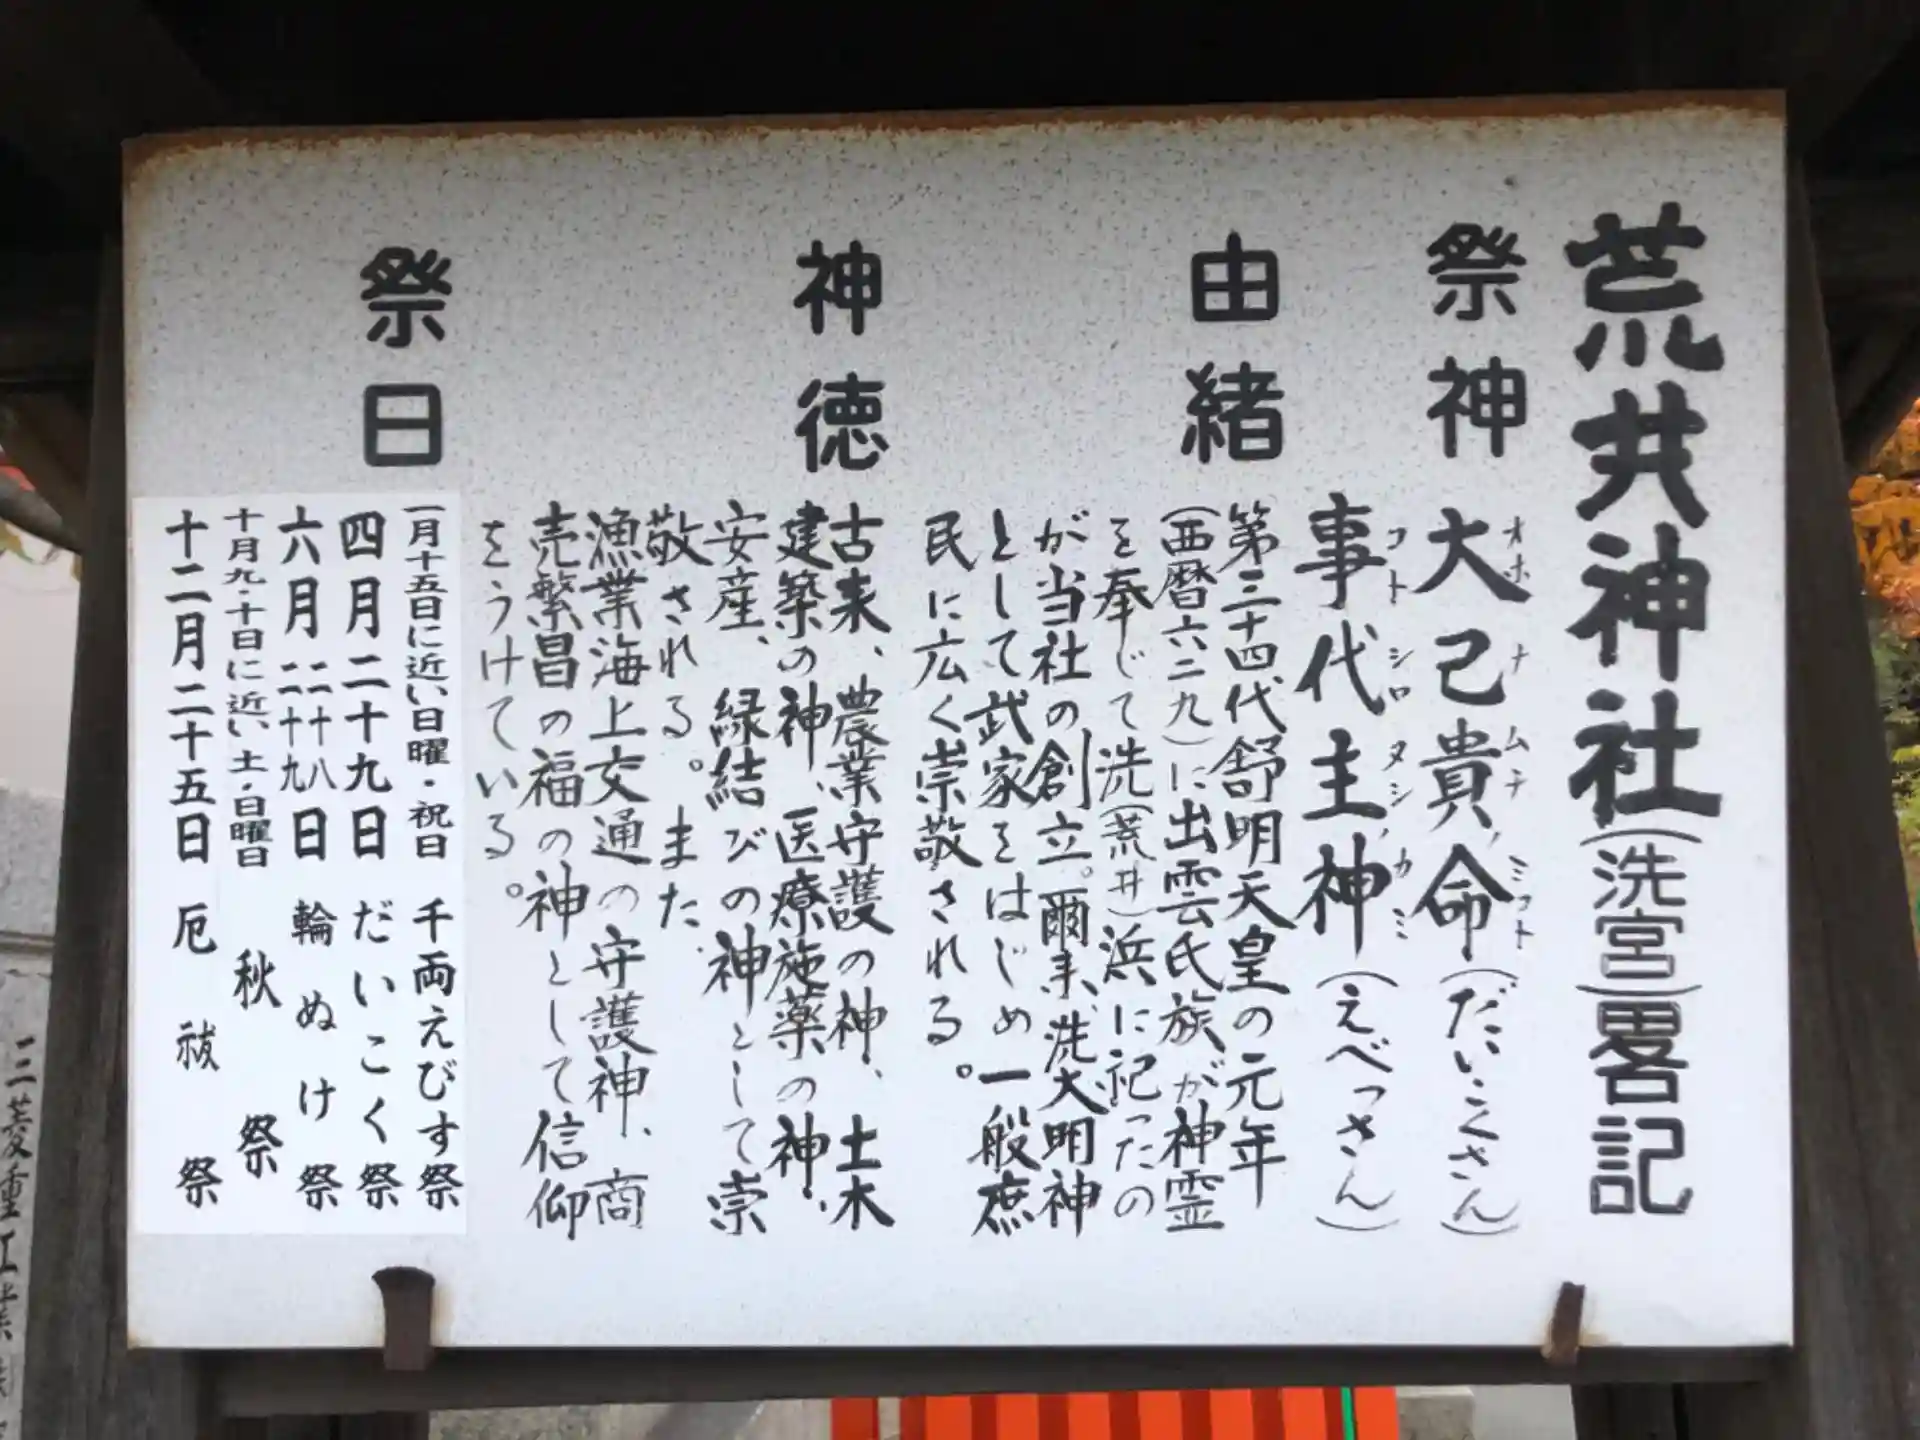 荒井神社(洗宮)畧記
祭神
大己貴命(だいこくさん)
オホナムチノミコト
事代主神(えべっさん)
コトシロヌシノカミ
由緒
第三十四代舒明天皇の元年
(西暦六二九)に出雲氏族が神霊
を奉じて洗(荒井)浜に祀ったの
が当社の創立。爾来、洗大明神
として武家をはじめ一般庶
民に広く崇敬される。
神徳
古来、農業守護の神、土木
建築の神、医療施薬の神、
安産、縁結びの神として崇
敬される。また、
漁業海上交通の守護神、商
売繁昌の福の神として信仰
をうけている。
祭日
一月十五日に近い日曜・祝日 千両えびす祭
四月二十九日 だいこく祭
六月二十八二十九日 輪ぬけ祭
十月九・十日に近い土・日曜日 秋祭
十二月二十五日 厄祓祭
三菱重工業